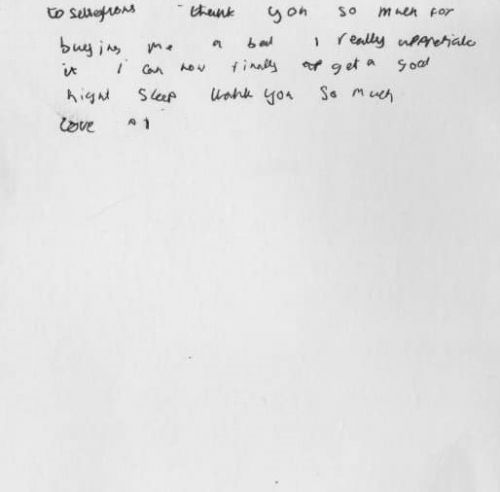 to thank you so much for
buying me a bed I really appretiate
it I can now finally get a good
night sleep thank you so much
Love